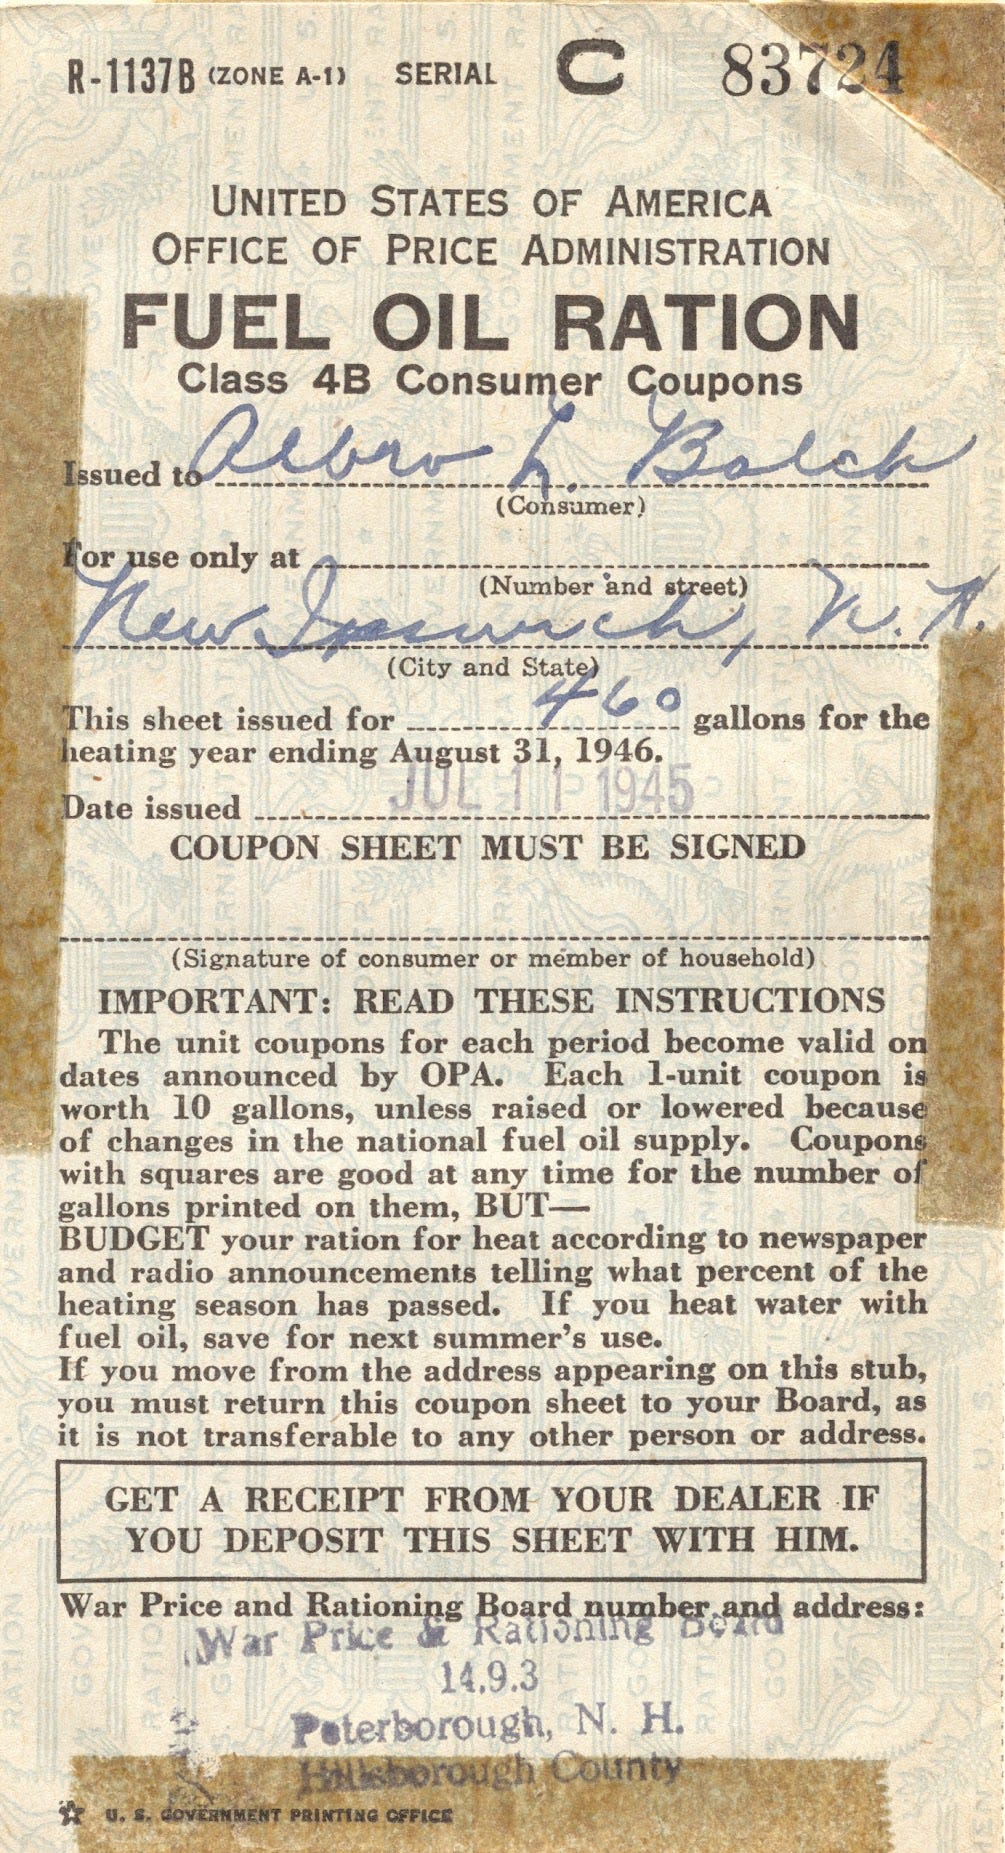 R-1137B (ZONE A-1) SERIAL C 83724
UNITED STATES OF AMERICA
OFFICE OF PRICE ADMINISTRATION
FUEL OIL RATION
Class 4B Consumer Coupons
Issued to Albro L. Balch
(Consumer)
For use only at
(Number and street)
New Ipswich, N. H.
(City and State)
This sheet issued for 460 gallons for the
heating year ending August 31, 1946.
Date issued JUL 11 1945
COUPON SHEET MUST BE SIGNED
(Signature of consumer or member of household)
IMPORTANT: READ THESE INSTRUCTIONS
The unit coupons for each period become valid on
dates announced by OPA. Each 1-unit coupon is
worth 10 gallons, unless raised or lowered because
of changes in the national fuel oil supply. Coupons
with squares are good at any time for the number of
gallons printed on them, BUT—
BUDGET your ration for heat according to newspaper
and radio announcements telling what percent of the
heating season has passed. If you heat water with
fuel oil, save for next summer's use.
If you move from the address appearing on this stub,
you must return this coupon sheet to your Board, as
it is not transferable to any other person or address.
GET A RECEIPT FROM YOUR DEALER IF
YOU DEPOSIT THIS SHEET WITH HIM.
War Price and Rationing Board number and address:
War Price & Rationing Board
14.9.3
Peterborough, N. H.
Hillsborough County
U. S. GOVERNMENT PRINTING OFFICE